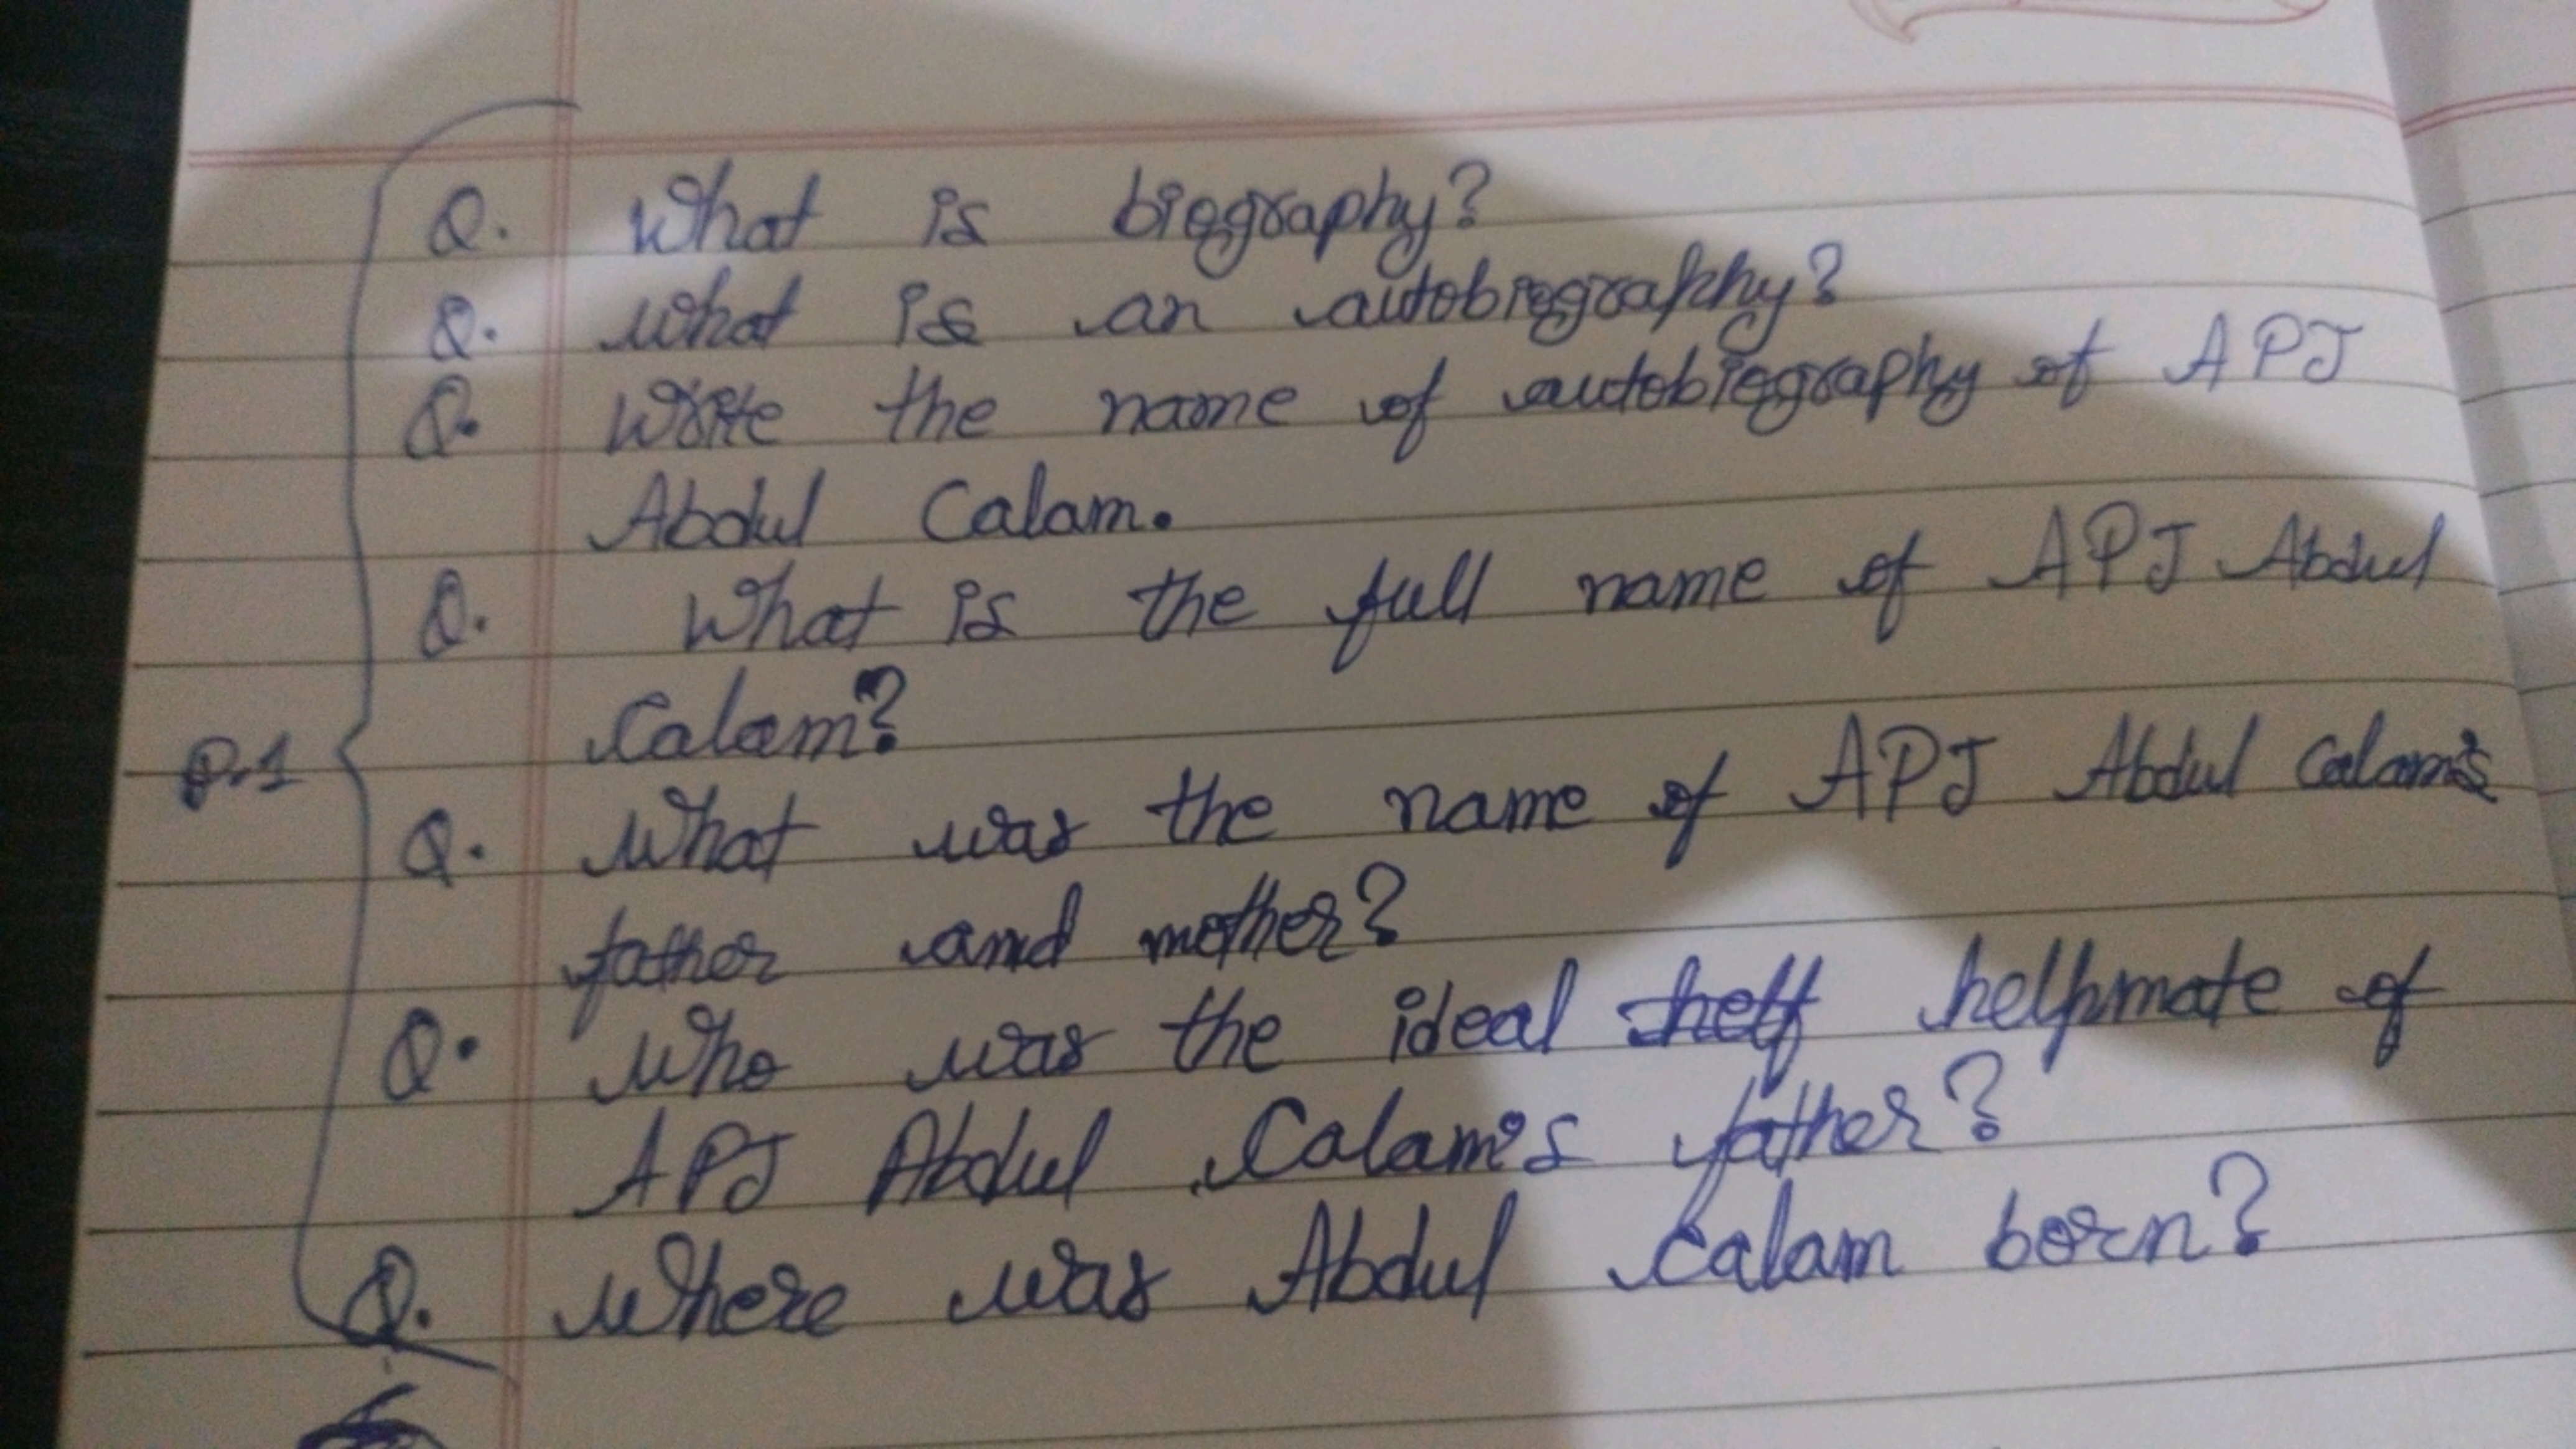 Q. What is biography?
Q. What is an autobiography?
Q. Write the name of autobiography of APJ
Abdul Calam.
Q. What is the full name of APJ Abdul
Calam?
P.1
Q. What was the name of APJ Abdul Calam's
father and mother?
Q. Who was the ideal helpmate of
APJ Abdul Calam's father?
Q. Where was Abdul Calam born?